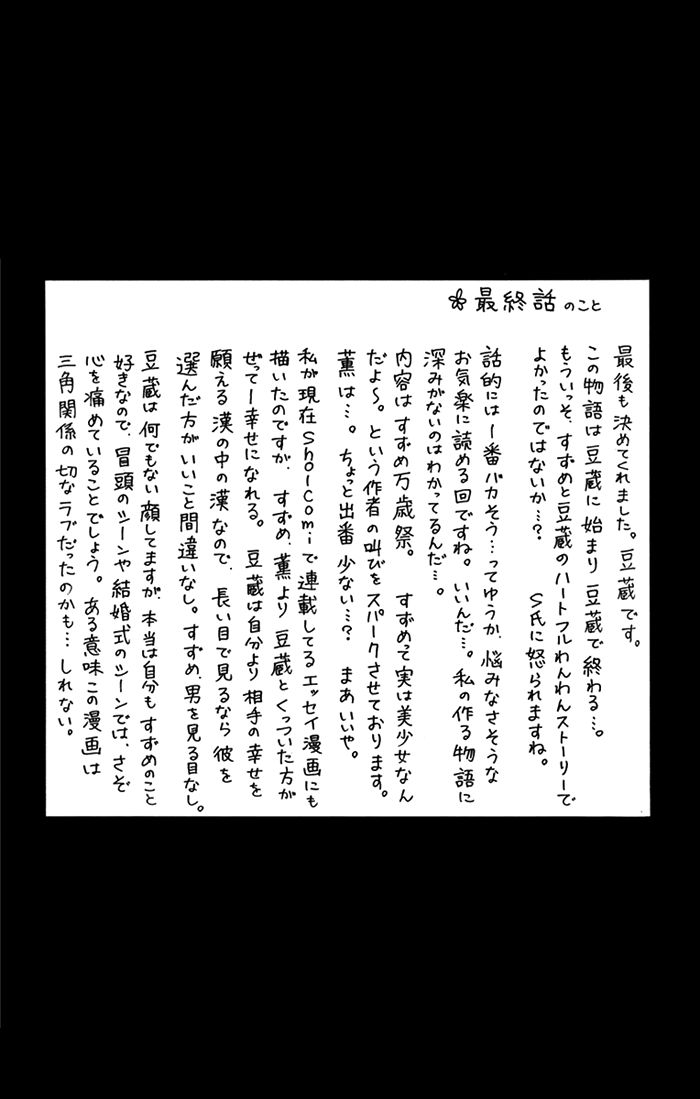 ✿最終話のこと
最後も決めてくれました。豆蔵です。
この物語は豆蔵に始まり豆蔵で終わる…。
もういっそ、すずめと豆蔵のハートフルわんわんストーリーで
よかったのではないか…? S氏に怒られますね。
話的には1番バカそう…ってゆうか、悩みなさそうな
お気楽に読める回ですね。いいんだ…。私の作る物語に
深みがないのはわかってるんだ…。
内容はすずめ万歳祭。 すずめて実は美少女なん
だよ〜。という作者の叫びをスパークさせております。
薫は…。ちょっと出番少ない…? まあいいや。
私が現在Sho-Comiで連載してるエッセイ漫画にも
描いたのですが、すずめ、薫より豆蔵とくっついた方が
ぜってー幸せになれる。 豆蔵は自分より相手の幸せを
願える漢の中の漢なので、長い目で見るなら彼を
選んだ方がいいこと間違いなし。すずめ、男を見る目なし。
豆蔵は何でもない顔してますが、本当は自分もすずめのこと
好きなので、冒頭のシーンや結婚式のシーンでは、さぞ
心を痛めていることでしょう。ある意味この漫画は
三角関係の切なラブだったのかも…しれない。